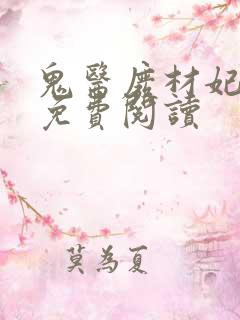 鬼醫廢材妃
免費閱讀
莫為夏